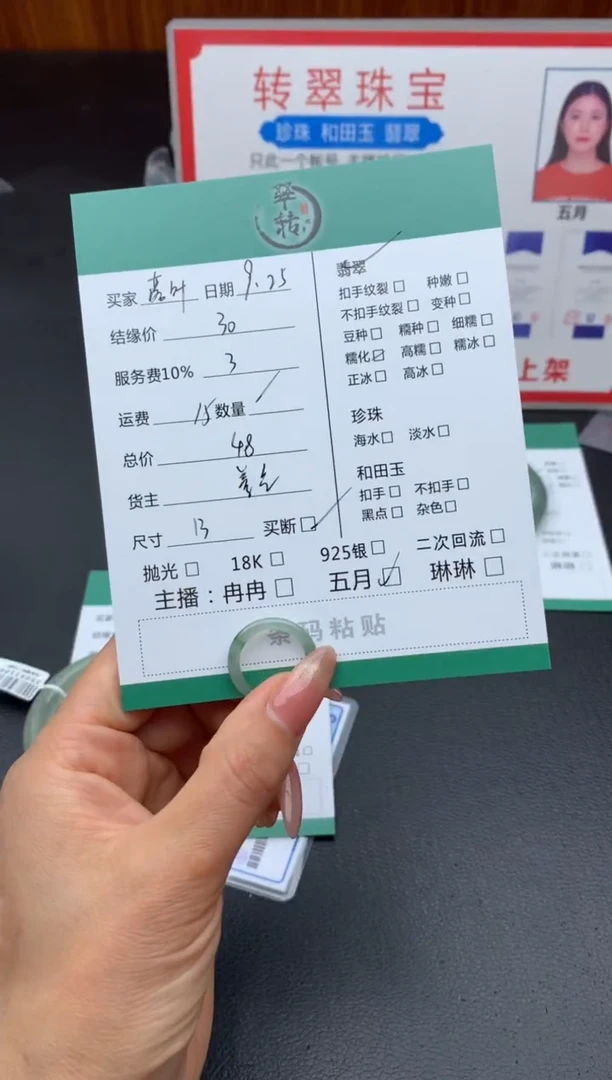 转翠珠宝
珍珠 和田玉 翡翠
只此一个帐号
五月
上架
翠
转
买家 日期 9.25
结缘价 30
服务费10% 3
运费 15 数量
总价 48
货主 姜总
尺寸 13 买断☐
翡翠
扣手纹裂☐ 种嫩☐
不扣手纹裂☐ 变种☐
豆种☐ 糯种☐ 细糯☐
糯化☑ 高糯☐ 糯冰☐
正冰☐ 高冰☐
珍珠
海水☐ 淡水☐
和田玉
扣手☐ 不扣手☐
黑点☐ 杂色☐
抛光☐ 18K☐ 925银☐ 二次回流☐
主播：冉冉☐ 五月☑ 琳琳☐
条码粘贴